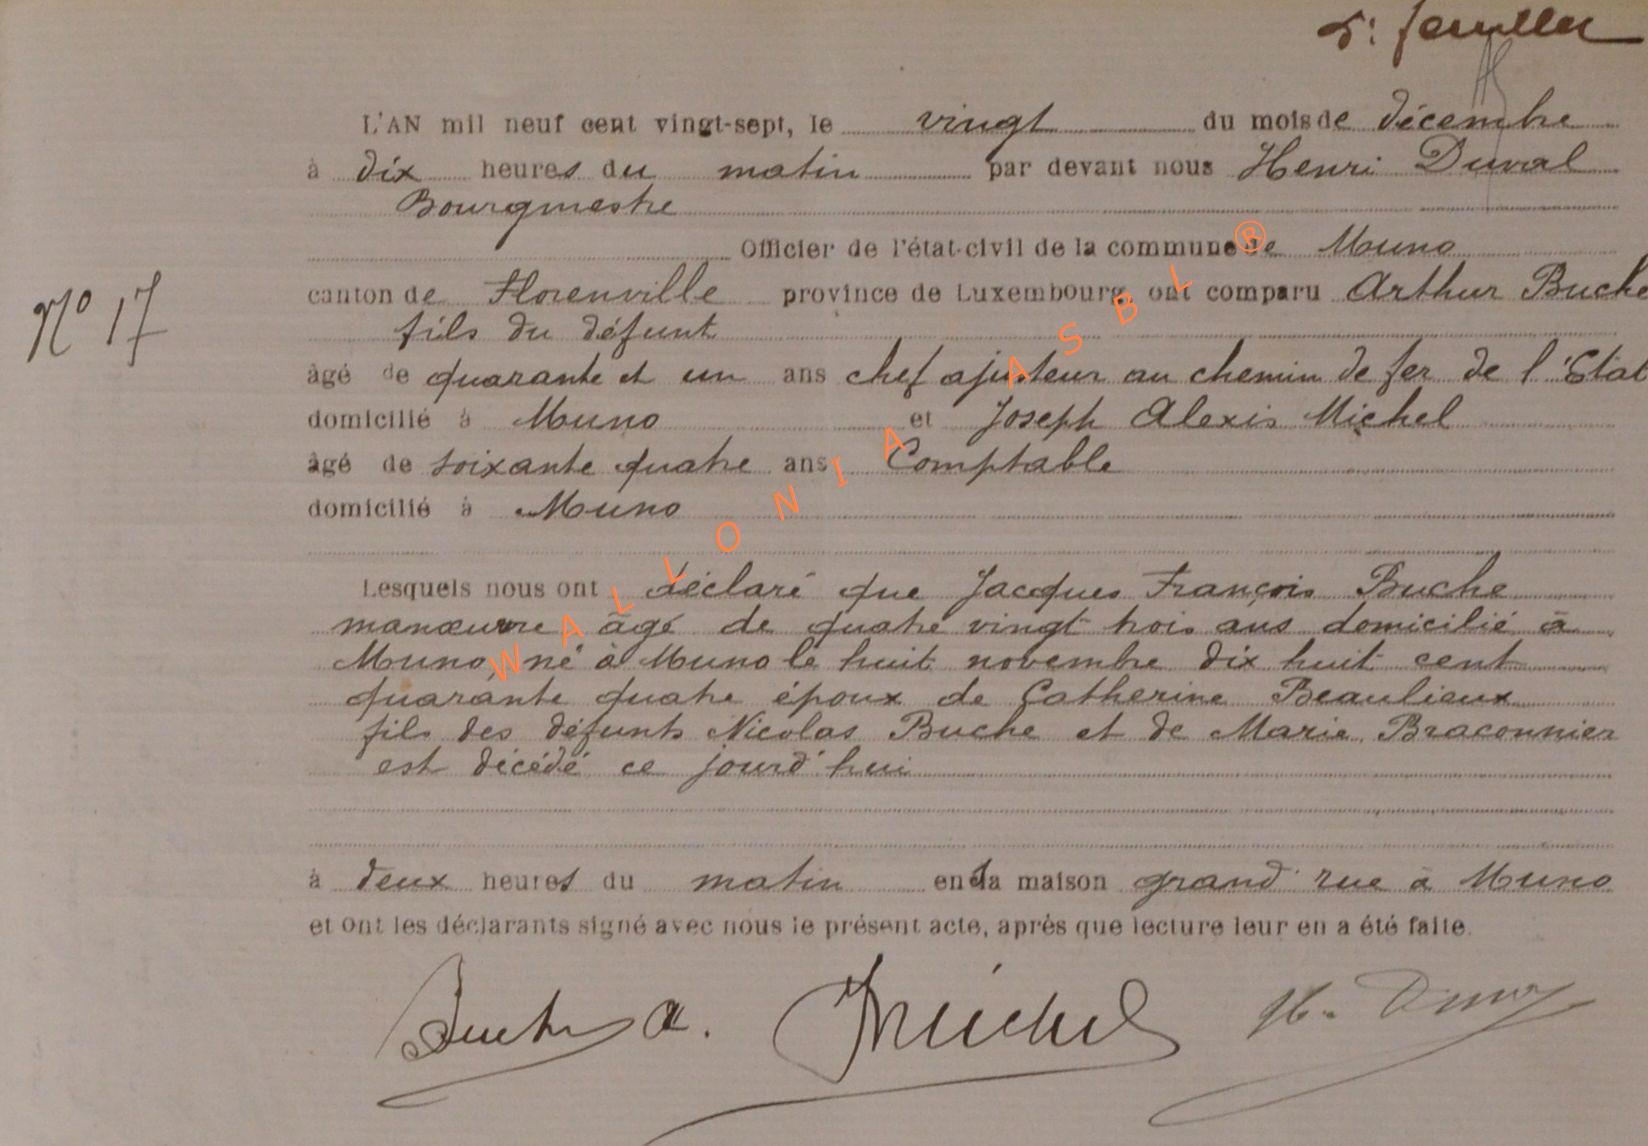 5: feuillet
L'AN mil neuf cent vingt-sept, le vingt du mois de décembre
à dix heures du matin par devant nous Henri Duval
Bourgmestre
Officier de l'état-civil de la commune de Muno
N° 17
canton de Florenville province de Luxembourg ont comparu Arthur Buche
fils du défunt
âgé de quarante et un ans chef ajusteur au chemin de fer de l'État
domicilié à Muno et Joseph Alexis Michel
âgé de soixante quatre ans Comptable
domicilié à Muno
Lesquels nous ont déclaré que Jacques François Buche
manœuvre âgé de quatre vingt trois ans domicilié à
Muno, né à Muno le huit novembre dix huit cent
quarante quatre époux de Catherine Beaulieux
fils des défunts Nicolas Buche et de Marie Braconnier
est décédé ce jourd'hui
à deux heures du matin en la maison grand'rue à Muno
et ont les déclarants signé avec nous le présent acte, après que lecture leur en a été faite.
Buche a. JMichel H. Duval
WALLONIA ASBL ®